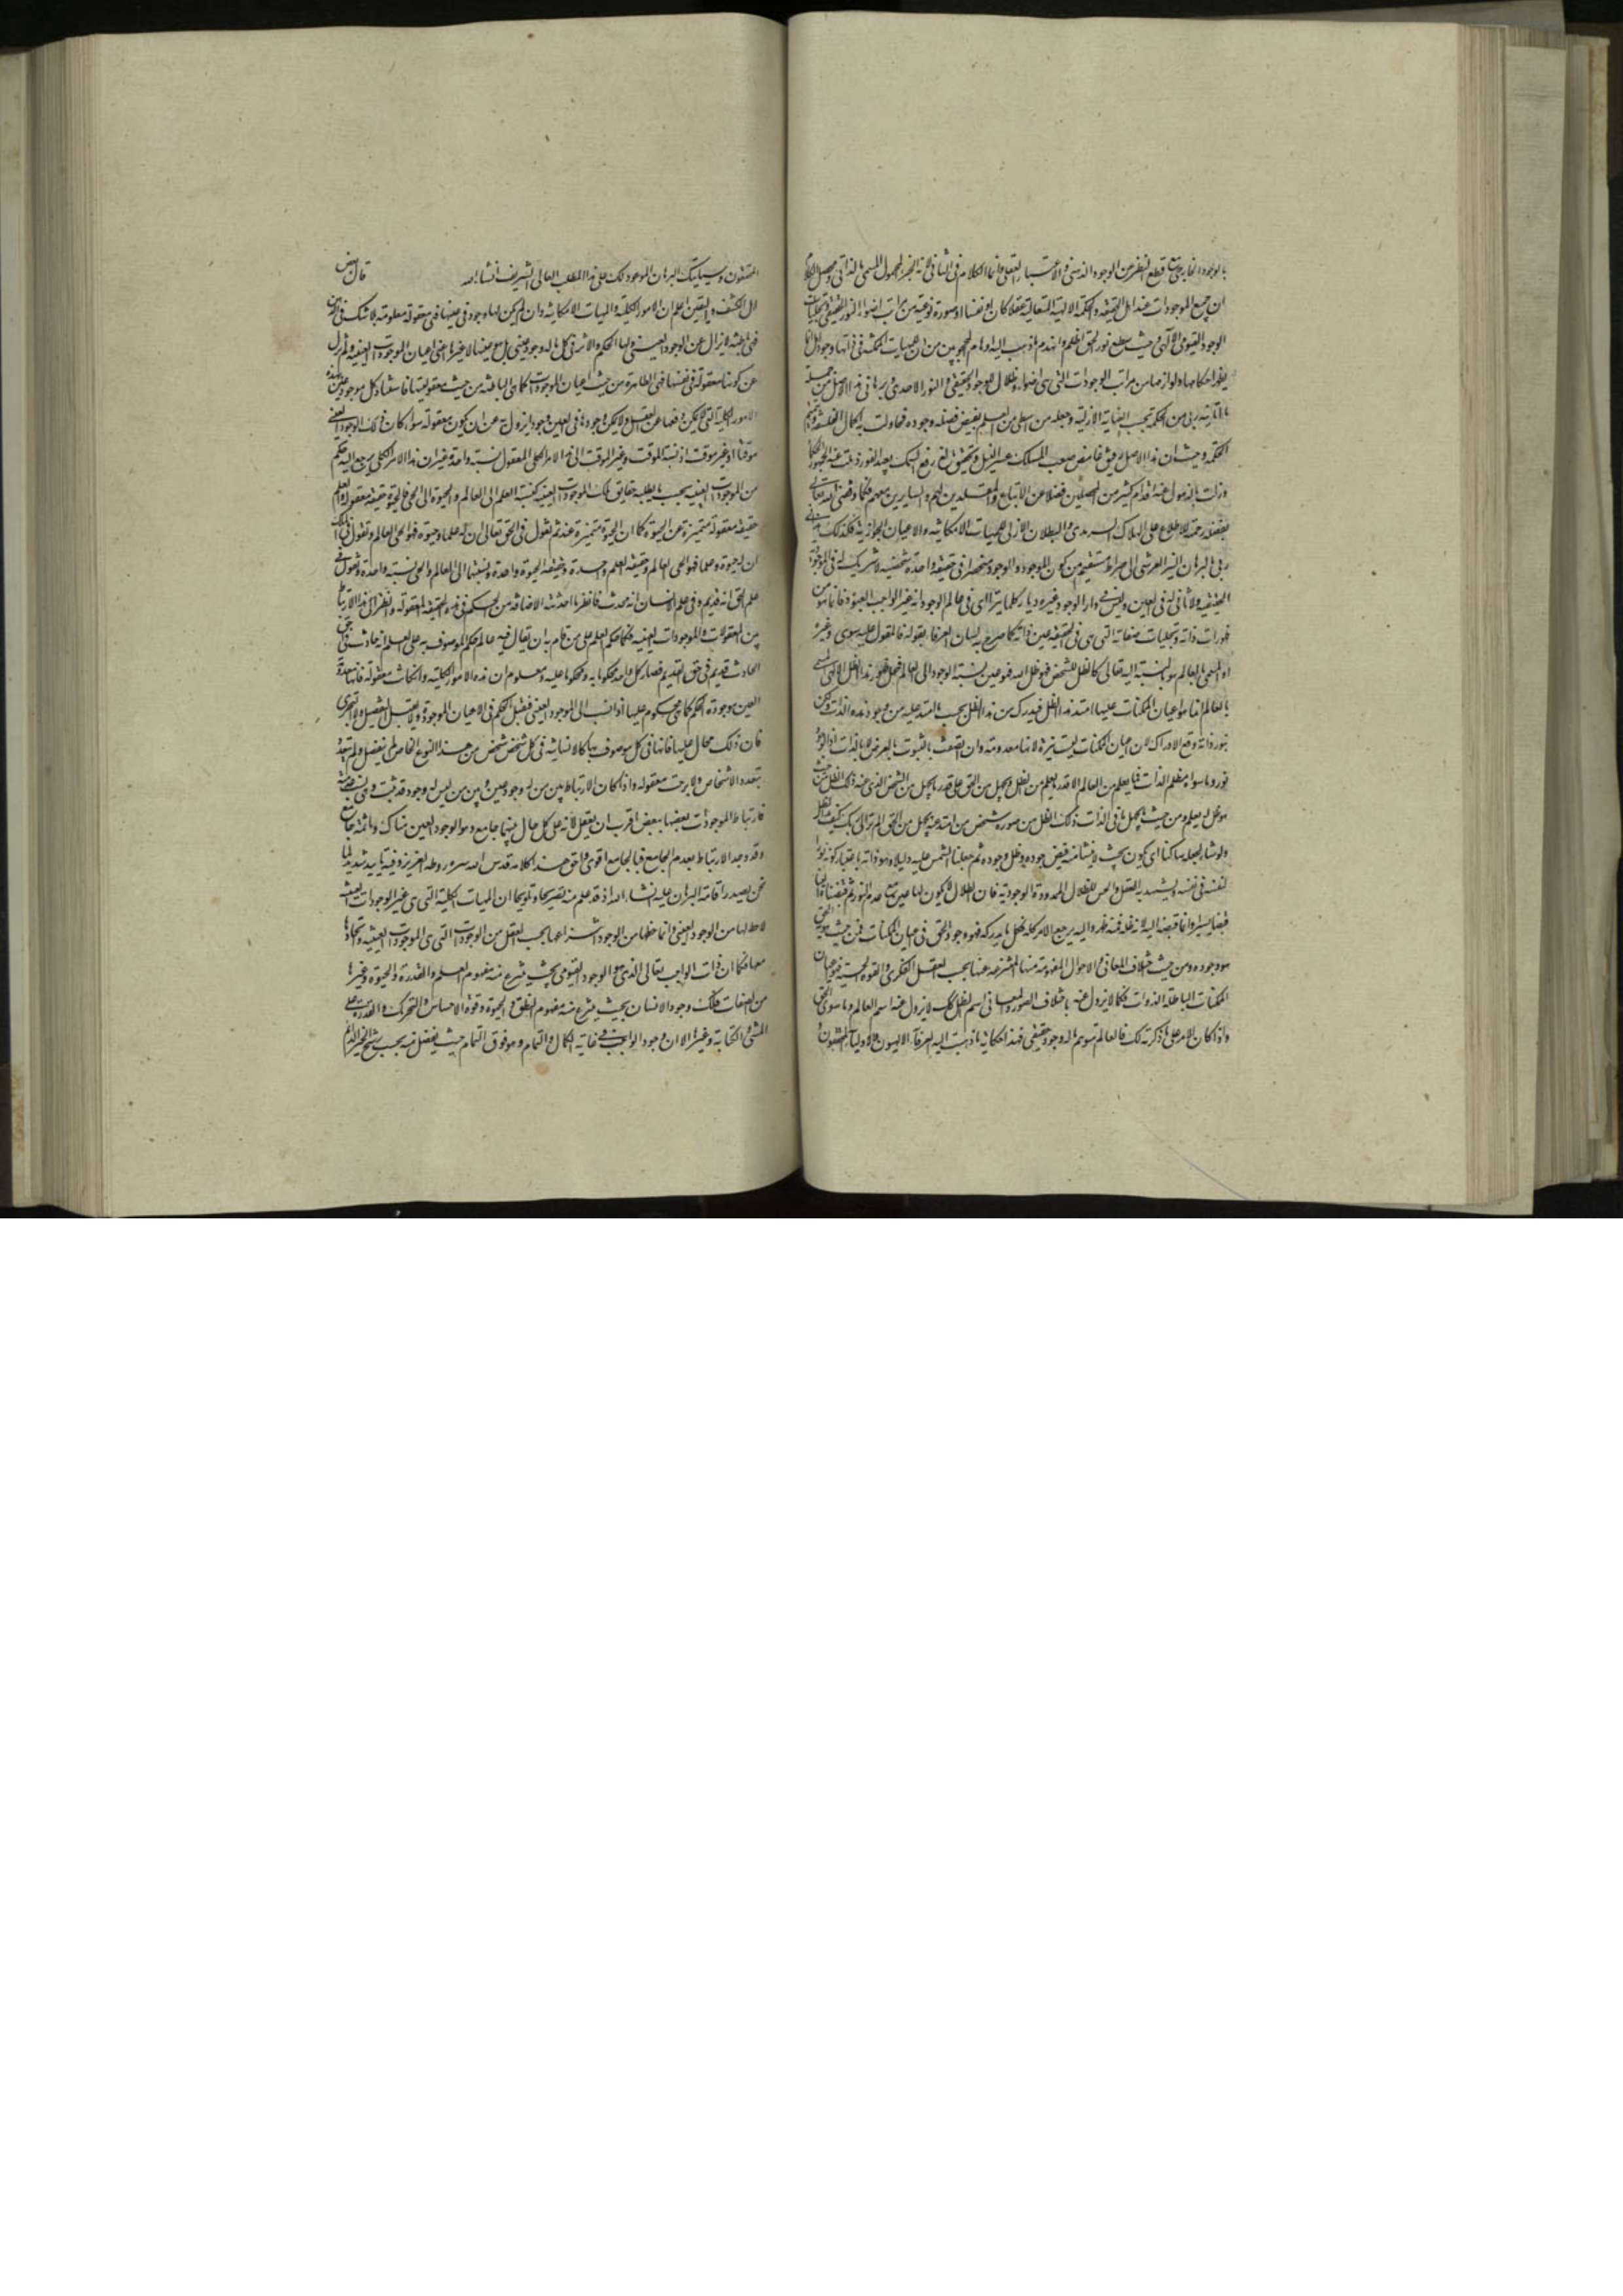 بالوجود الخارجي مع قطع النظر عن الوجود الذهني والاعتبار العقلي وانما الكلام في الثاني لانه الخبر المحمول المسمى بالذاتي
ان جميع الموجودات عند اهل الحقيقة والحكمة الالهية المتعالية عقلا كان او نفسا او صورة نوعية من مراتب اضواء النور الحقيقي وتجليات
الوجود القيومي الالهي وحيث سطع نور الحق اظلم وانهدم ما ذهب اليه اوهام المحجوبين من ان للماهيات الممكنة في ذاتها وجودا بل انما
يظهر احكامها ولوازمها من مراتب الوجودات التي هي اضواء وظلال للوجود الحقيقي والنور الاحدي وبرهان هذا الاصل من جملة
ما آتانيه ربي من الحكمة بحسب العناية الازلية وجعله من العلم بفيض فضله وجوده فحاولت به اكمال الفلسفة وتتميم
الحكمة وحيث ان هذا الاصل دقيق غامض صعب المسلك عسير النيل وتحقيق بالغ رفيع السمك بعيد الغور ذهلت عنه
وزلت بالذهول عنه اقدام كثير من المحصلين فضلا عن الاتباع والمقلدين لهم والسايرين معهم فكما وفقني الله تعالى
بفضله ورحمته للاطلاع على الهلاك السرمدي والبطلان الازلي للماهيات الامكانية والاعيان الجوازية فكذلك هداني
ربي بالبرهان النير العرشي الى صراط مستقيم من كون الموجود والوجود منحصرا في حقيقة واحدة شخصية لا شريك له في الموجودية
الحقيقية ولا ثاني له في العين وليس في دار الوجود غيره ديار وكلما يترااى في عالم الوجود انه غير الواجب المعبود فانما هو من
ظهورات ذاته وتجليات صفاته التي هي في الحقيقة عين ذاته كما صرح به لسان العرفاء بقوله فالمقول عليه سوى الله وغيره
او المسمى بالعالم هو بالنسبة اليه تعالى كالظل للشخص فهو ظل الله فهو عين نسبة الوجود الى العالم فمحل ظهور هذا الظل الالهي المسمى
بالعالم انما هو اعيان الممكنات عليها امتد هذا الظل فيدرك من هذا الظل بحسب ما امتد عليه من وجود هذه الذات ولكن
بنور ذاته وقع الادراك لان اعيان الممكنات ليست نيرة لانها معدومة وان اتصفت بالثبوت بالعرض لا بالذات اذ الوجود
نور وما سواه مظلم الذات فما يعلم من العالم الا قدر ما يعلم من الظل ويجهل من الحق على قدر ما يجهل من الشخص الذي عنه ذلك الظل فمن حيث
هو ظل له يعلم ومن حيث ما يجهل ما في الذات ذلك الظل من صورة شخص من امتد عنه يجهل من الحق الم تر الى ربك كيف مد الظل
ولو شاء لجعله ساكنا اي يكون بحيث لا ينشأ منه فيض جوده وظل وجوده ثم جعلنا الشمس عليه دليلا وهو ذاته باعتبار كونه نورا
لنفسه في نفسه ويشهد به العقل والحس للظلال الممدودة الوجودية فان الظلال لا يكون لها عين مع عدم النور ثم قبضناه الينا
قبضا يسيرا وانما قبضه اليه لانه ظله فمنه ظهر واليه يرجع الامر كله فكل ما يدركه فهو وجود الحق في اعيان الممكنات فمن حيث هوية الحق
هو وجوده ومن حيث اختلاف المعاني والاحوال المفهومة منها المنتزعة عنها بحسب العقل الفكري والقوة الحسية فهو اعيان
الممكنات الباطلة الذوات فكما لا يزول عنه باختلاف الصور اسم الظل كذلك لا يزول عنه اسم العالم وما سوى الحق
واذا كان الامر على ما ذكرته لك فالعالم متوهم ما له وجود حقيقي فهذا حكاية ما ذهبت اليه العرفاء الالهيون والاولياء المحققون
المحققون وسياتيك البرهان الموعود لك على هذا المطلب العالي الشريف انشاء الله قال بعض
اهل الكشف واليقين اعلم ان الامور الكلية والماهيات الامكانية وان لم يكن لها وجود في عينها فهي معقولة معلومة بلا شك في الذهن
فهي باطنة لا تزال عن الوجود العيني ولها الحكم والاثر في كل ما له وجود عيني بل هو عينها لا غيرها اعني اعيان الموجودات العينية ولم تزل
عن كونها معقولة في نفسها فهي الظاهرة من حيث اعيان الموجودات كما هي الباطنة من حيث معقوليتها فاستناد كل موجود عيني لهذه
الامور الكلية التي لا يمكن رفعها عن العقل ولا يمكن وجودها في العين وجودا يزول به عن ان يكون معقولة سواء كان ذلك الوجود العيني
موقتا او غير موقت اذ نسبة الموقت وغير الموقت الى هذا الامر الكلي المعقول نسبة واحدة غير ان هذا الامر الكلي يرجع اليه حكم
من الموجودات العينية بحسب ما يطلبه حقايق تلك الموجودات العينية كنسبة العلم الى العالم والحيوة الى الحي فالحيوة حقيقة معقولة والعلم
حقيقة معقولة متميزة عن الحيوة كما ان الحيوة متميزة عنه ثم نقول في الحق تعالى ان له علما وحيوة فهو الحي العالم ونقول في الملك
ان له حيوة وعلما فهو الحي العالم وحقيقة العلم واحدة وحقيقة الحيوة واحدة ونسبتهما الى العالم والحي نسبة واحدة ونقول في
علم الحق انه قديم وفي علم الانسان انه محدث فانظر ما احدثته الاضافة من الحكم في هذه الحقيقة المعقولة وانظر الى هذا الارتباط
بين المعقولات والموجودات العينية فكما حكم العلم على من قام به ان يقال فيه عالم حكم الموصوف به على العلم انه حادث في حق
الحادث قديم في حق القديم فصار كل واحد محكوما به ومحكوما عليه ومعلوم ان هذه الامور الكلية وان كانت معقولة فانها معدومة
العين موجودة الحكم كما هي محكوم عليها اذا نسب الى الموجود العيني فتقبل الحكم في الاعيان الموجودة ولا تقبل التفصيل ولا التجزي
فان ذلك محال عليها فانها في كل موصوف بها كالانسانية في كل شخص شخص من هذا النوع الخاص لم يتفصل ولم يتعدد
بتعدد الاشخاص ولا برحت معقولة واذا كان الارتباط بين من له وجود عيني وبين من ليس له وجود عيني قد ثبت وهي نسب عدمية
فارتباط الموجودات بعضها ببعض اقرب ان يعقل لانه على كل حال بينهما جامع وهو الوجود العيني وهناك فما ثمه جامع
وقد وجد الارتباط بعدم الجامع فبالجامع اقوى واحق هذا كلامه قدس الله سره وروحه العزيز وفيه تاييد شديد لما
نحن بصدد اقامة البرهان عليه انشاء الله اذ قد علم منه تصريحا وتلويحا ان الماهيات الكلية التي هي غير الموجودات العينية
لا حظ لها من الوجود العيني وانما حظها من الوجود انتزاعها بحسب العقل من الوجودات التي هي الموجودات العينية واتحادها
معها فكما ان ذات الواجب تعالى الذي هو الوجود القيومي بحيث ينتزع منه مفهوم العلم والقدرة والحيوة وغيرها
من الصفات فكذلك وجود الانسان بحيث ينتزع منه مفهوم النطق والحيوة وقوة الاحساس والتحريك والقدرة على
المشي والكتابة وغيرها الا ان وجود الواجب في غاية الكمال والتمام وهو فوق التمام حيث يفضل منه بحسب رشح الخير الدائم